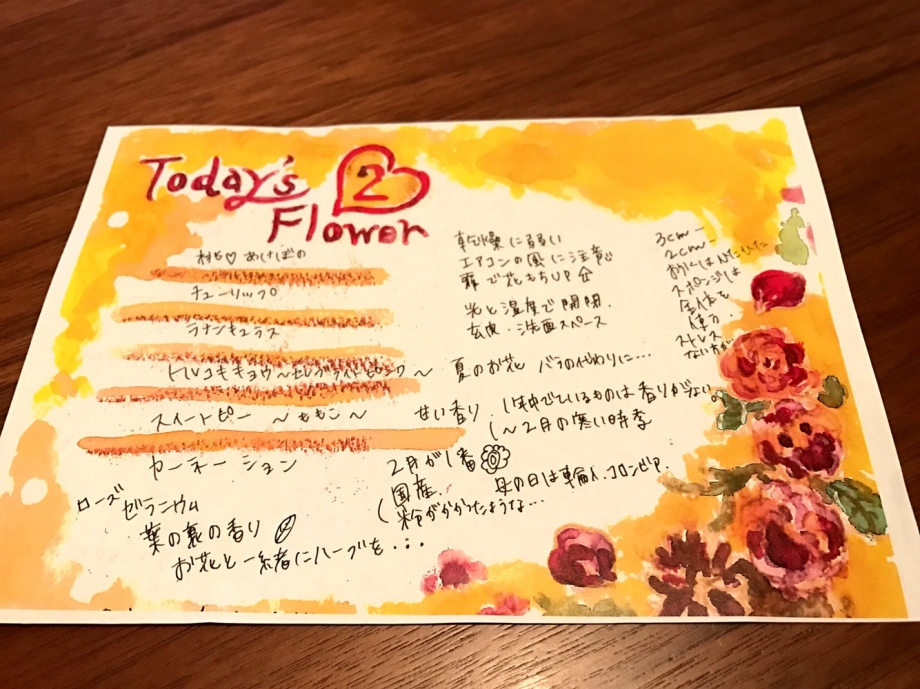 Today's 2
Flower
あけぼの
チューリップ
ラナンキュラス
トルコキキョウ〜セレブライトピーチ〜
スイートピー 〜ももこ〜
カーネーション
ローズ
ゼラニウム
葉の裏の香り
お花と一緒にハーブを...
乾燥に弱い
エアコンの風に注意
霧で花もちUP
光と湿度で開閉.
玄関・洗面スペース
夏のお花 バラの代わりに...
甘い香り
年中でているものは香りが少ない。
(〜2月の寒い時季
2月が1番
(国産.
母の日は輸入.コロンビア.
粉がかかったような...
3cm-
2cm-
スポンジは
全体を
使う.
ストレス
ない方が